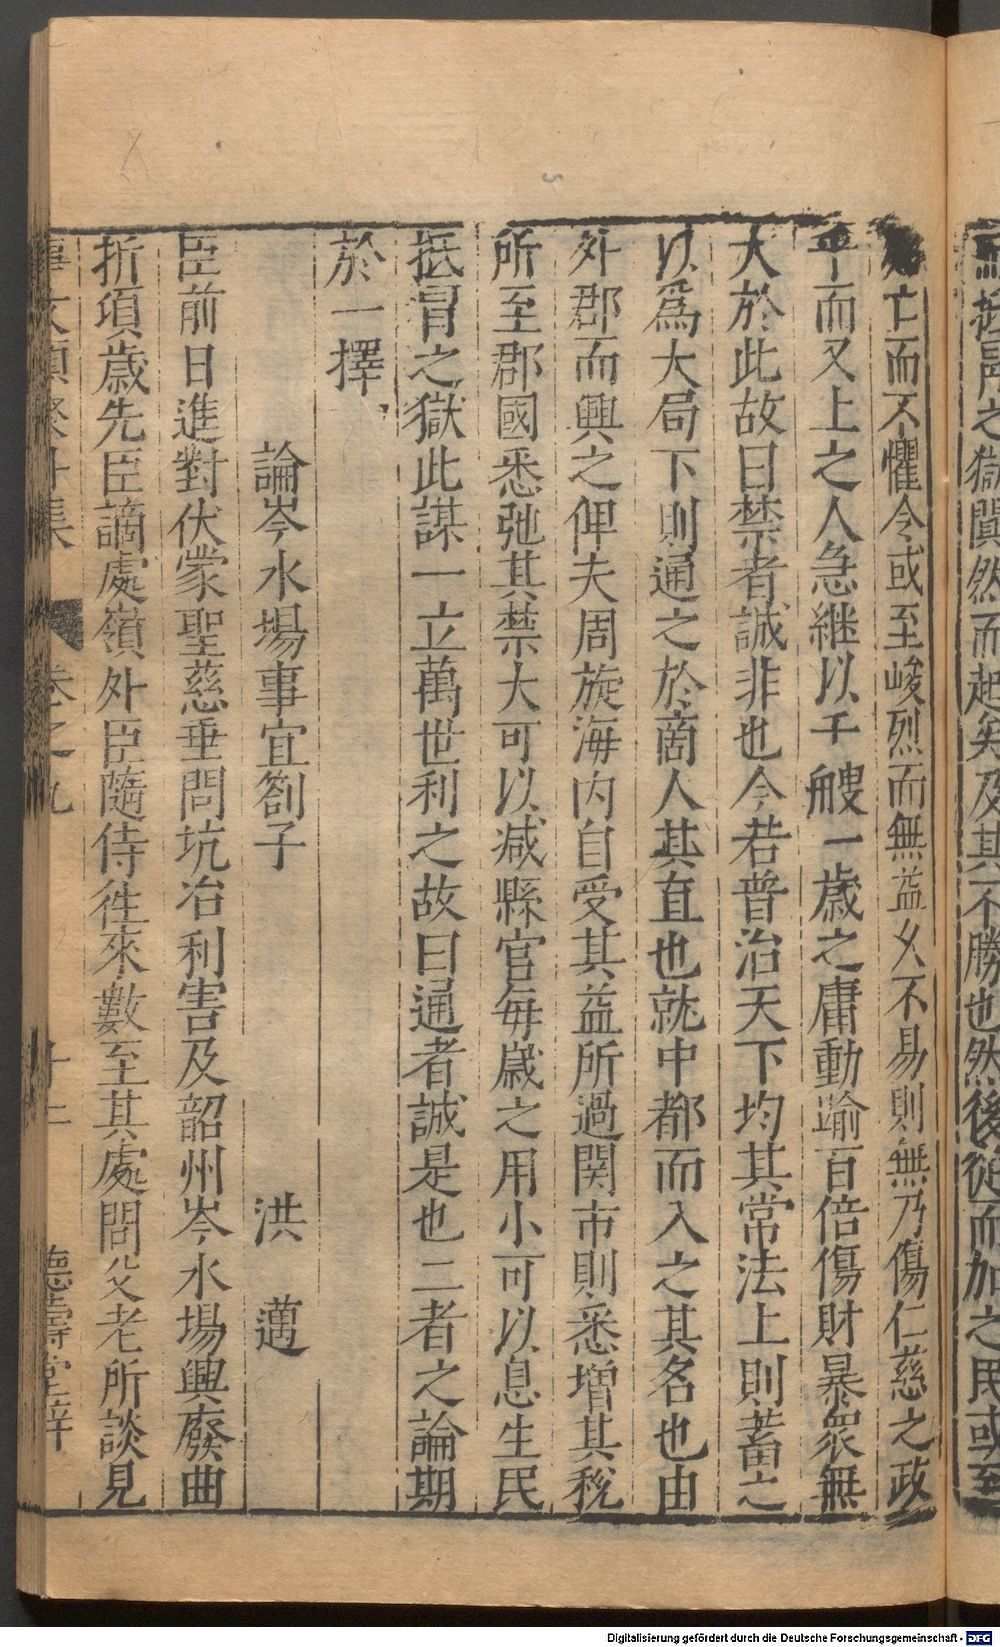 㸃捉鬥之獄闐然而起矣及其不勝也然後從而加之民或至
亡而不懼令或至峻烈而無益必不易則無乃傷仁慈之政
千而又上之人急継以千艘一歳之庸動踰百倍傷財暴衆無
大於此故曰禁者誠非也今若普治天下均其常法上則蓄之
以爲大局下則通之於商人其直也就中都而入之其名也由
外郡而興之俾夫周旋海内自受其益所過関市則悉增其稅
所至郡國悉弛其禁大可以减縣官每歳之用小可以息生民
抵冒之獄此謀一立萬世利之故曰通者誠是也二者之論期
於一擇
論岑水場事宜劄子 洪 邁
臣前日進對伏蒙聖慈垂問坑冶利害及韶州岑水場興廢曲
折項歳先臣謫處嶺外臣隨侍徃來數至其處問父老所談見
事文類聚外集 卷之九 十二 德壽堂梓
Digitalisierung gefördert durch die Deutsche Forschungsgemeinschaft - DFG